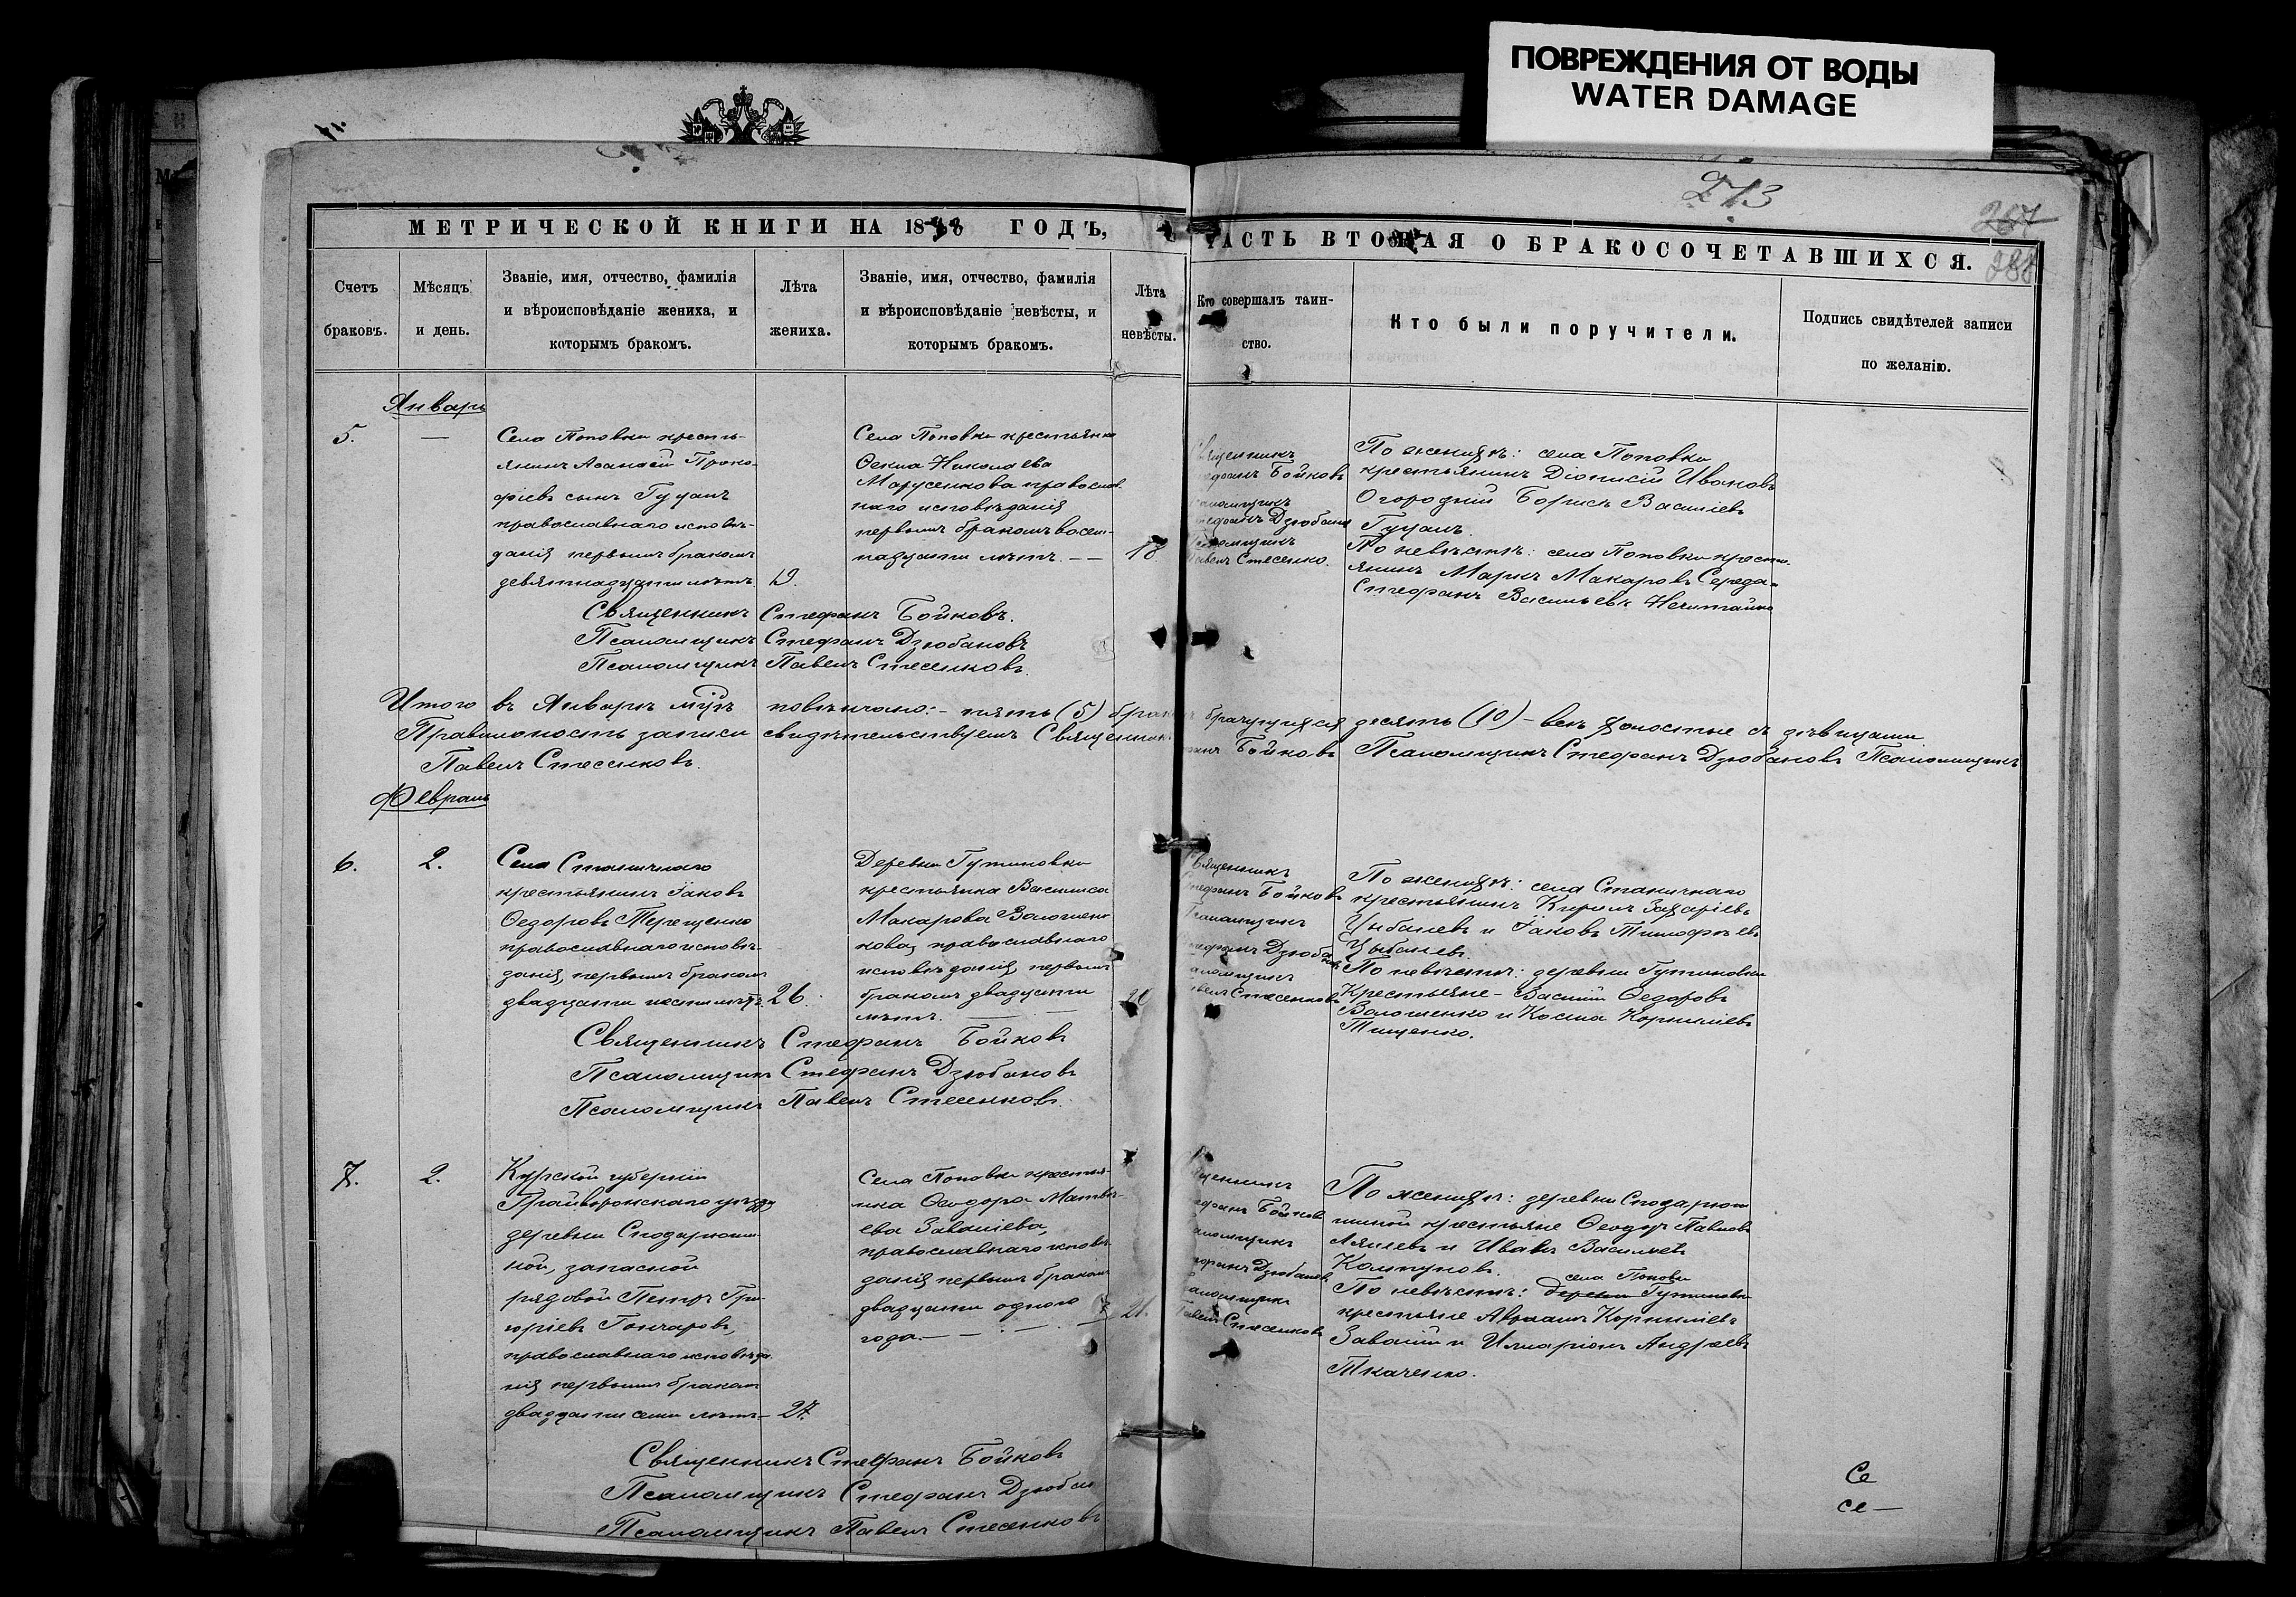 ПОВРЕЖДЕНИЯ ОТ ВОДЫ
WATER DAMAGE
273
267
288
МЕТРИЧЕСКОЙ КНИГИ НА 18 ГОДЪ,
ЧАСТЬ ВТОРАЯ О БРАКОСОЧЕТАВШИХСЯ.
Счетъ
браковъ.
Мѣсяцъ
и день.
Званіе, имя, отчество, фамилія
и вѣроисповѣданіе жениха, и
которымъ бракомъ.
Лѣта
жениха.
Званіе, имя, отчество, фамилія
и вѣроисповѣданіе невѣсты, и
которымъ бракомъ.
Лѣта
невѣсты.
Кто совершалъ таин-
ство.
Кто были поручители.
Подпись свидѣтелей записи
по желанію.
Январь
5. —
Села Поповки кресть-
янинъ Аѳанасій Проко-
фіевъ сынъ Гуцалъ
православнаго исповѣ-
данія первымъ бракомъ
девятнадцати лѣтъ
19.
Села Поповки крестьянка
Ѳекла Николаева
Марусенкова православ-
наго исповѣданія
первымъ бракомъ восем-
надцати лѣтъ. — —
18.
Священникъ
Стефанъ Бойковъ
Псаломщикъ
Стефанъ Дзюбановъ
Псаломщикъ
Павелъ Стесенко.
По женихѣ: села Поповки
крестьянинъ Діонисій Ивановъ
Огородній Борисъ Василіевъ
Гуцалъ.
По невѣстѣ: села Поповки кресть-
янинъ Маркъ Макаровъ Середа
Стефанъ Васильевъ Нечитайло
Священникъ Стефанъ Бойковъ.
Псаломщикъ Стефанъ Дзюбановъ
Псаломщикъ Павелъ Стесенковъ.
Итого въ Январѣ м‑цѣ повѣнчано: – пять (5) браковъ брачущихся десять (10) – всѣ холостые съ дѣвицами
Правильность записи свидѣтельствуемъ Священникъ Стефанъ Бойковъ Псаломщикъ Стефанъ Дзюбановъ Псаломщикъ
Павелъ Стесенковъ.
Февраль
6. 2.
Села Станичнаго
крестьянинъ Іаковъ
Ѳедоровъ Терещенко
православнаго исповѣ-
данія, первымъ бракомъ
двадцати шести лѣтъ
26.
Деревни Гутировки
крестьянка Василиса
Макарова Волошен-
кова, православнаго
исповѣданія, первымъ
бракомъ двадцати
лѣтъ. —
20
Священникъ
Стефанъ Бойковъ
Псаломщикъ
Стефанъ Дзюбановъ
Псаломщикъ
Павелъ Стесенковъ
По женихѣ: села Станичнаго
крестьянинъ Кирилъ Захаріевъ
Цыбалевъ и Іаковъ Тимофѣевъ
Цыбалевъ.
По невѣстѣ: деревни Гутировки
Крестьяне – Василій Ѳедоровъ
Волошенко и Косма Корниліевъ
Тищенко.
Священникъ Стефанъ Бойковъ
Псаломщикъ Стефанъ Дзюбановъ
Псаломщикъ Павелъ Стесенковъ.
7. 2.
Курской губерніи
Грайворонскаго уѣзда
деревни Сподарюши-
ной, запасной
рядовой Петръ Гри-
горіевъ Гончаровъ,
православнаго исповѣда-
нія первымъ бракомъ
двадцати семи лѣтъ –
27.
Села Поповки крестья-
нка Ѳеодора Матвѣ-
ева Заваліева,
православнаго исповѣ-
данія первымъ бракомъ
двадцати одного
года. — —
21.
Священникъ
Стефанъ Бойковъ
Псаломщикъ
Стефанъ Дзюбановъ
Псаломщикъ
Павелъ Стесенковъ
По женихѣ: деревни Сподарюши-
ной крестьяне Ѳеодоръ Павловъ
и Иванъ Васильевъ
Колтуновъ.
села Поповки
По невѣстѣ: деревни Гутировки
крестьяне Авраамъ Корниліевъ
Завалій и Иларіонъ Андреевъ
Ткаченко.
Священникъ Стефанъ Бойковъ
Псаломщикъ Стефанъ Дзюбановъ
Псаломщикъ Павелъ Стесенковъ
Се
се—